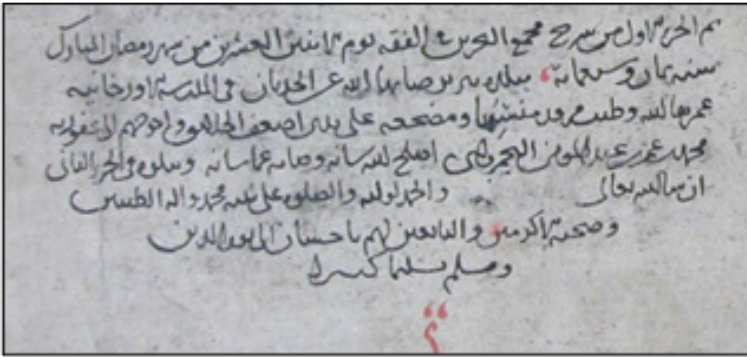 تم الجزء الاول من شرح مجمع البحرين في الفقه يوم الاثنين العشرين من شهر رمضان المبارك
سنة ثمان وسبعمائة بلده صانها الله عن الحدثان في المدرسة الاورخانية
عمرها الله وطيب مرقد منشئها ومضجعه على يدي اضعف الخلائق واحوجهم الى عفو ربه
محمد بن عمر بن عبد المؤمن اصلح الله شانه وصانه عما شانه ويتلوه في الجزء الثاني
ان شا الله تعالى والحمد لوليه والصلوة على نبيه محمد واله الطيبين
وصحبه الاكرمين والتابعين لهم باحسان الى يوم الدين
وسلم تسليما كثيرا